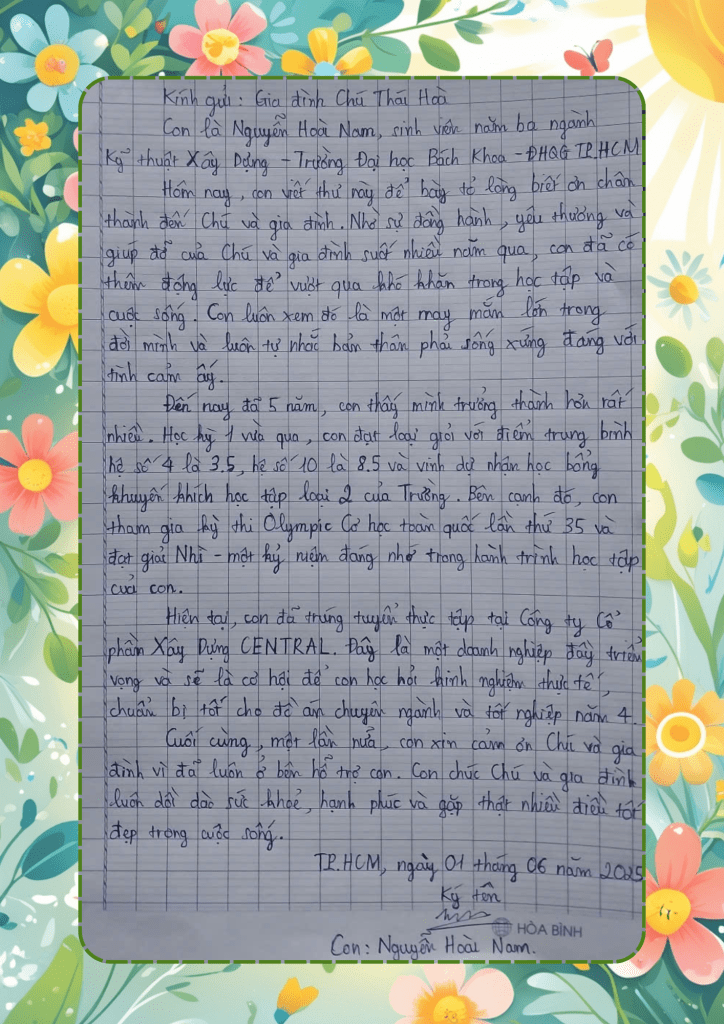 Kính gửi: Gia đình Chú Thái Hoà
Con là Nguyễn Hoài Nam, sinh viên năm ba ngành
Kỹ thuật Xây Dựng - Trường Đại học Bách Khoa - ĐHQG TP.HCM
Hôm nay, con viết thư này để bày tỏ lòng biết ơn chân
thành đến Chú và gia đình. Nhờ sự đồng hành, yêu thương và
giúp đỡ của Chú và gia đình suốt nhiều năm qua, con đã có
thêm động lực để vượt qua khó khăn trong học tập và
cuộc sống. Con luôn xem đó là một may mắn lớn trong
đời mình và luôn tự nhắc bản thân phải sống xứng đáng với
tình cảm ấy.
Đến nay đã 5 năm, con thấy mình trưởng thành hơn rất
nhiều. Học kỳ 1 vừa qua, con đạt loại giỏi với điểm trung bình
hệ số 4 là 3.5, hệ số 10 là 8.5 và vinh dự nhận học bổng
khuyến khích học tập loại 2 của Trường. Bên cạnh đó, con
tham gia kỳ thi Olympic Cơ học toàn quốc lần thứ 35 và
đạt giải Nhì - một kỷ niệm đáng nhớ trong hành trình học tập
của con.
Hiện tại, con đã trúng tuyển thực tập tại Công ty Cổ
phần Xây Dựng CENTRAL. Đây là một doanh nghiệp đầy triển
vọng và sẽ là cơ hội để con học hỏi kinh nghiệm thực tế,
chuẩn bị tốt cho đồ án chuyên ngành và tốt nghiệp năm 4.
Cuối cùng, một lần nữa, con xin cảm ơn Chú và gia
đình vì đã luôn ở bên hỗ trợ con. Con chúc Chú và gia đình
luôn dồi dào sức khoẻ, hạnh phúc và gặp thật nhiều điều tốt
đẹp trong cuộc sống.
TP.HCM, ngày 01 tháng 06 năm 2025
Ký tên
HÒA BÌNH
Con: Nguyễn Hoài Nam.